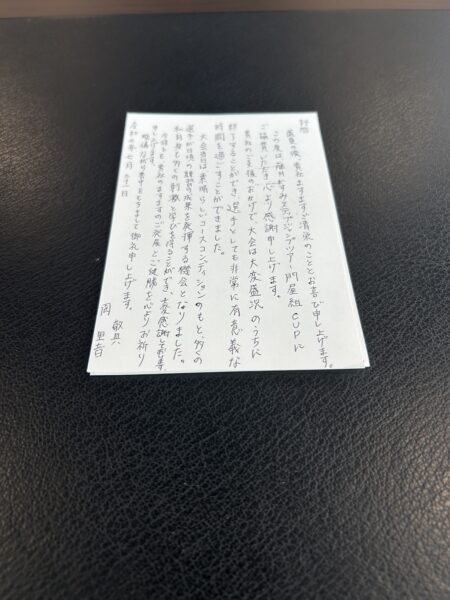 拝啓
盛夏の候、貴社ますますご清栄のこととお喜び申し上げます。
この度は藤井かすみ 門屋組CUPに
ご協賛いただき心より感謝申し上げます。
貴社のご支援のおかげで、大会は大変盛況のうちに
終了することができ、選手としても非常に有意義な
時間を過ごすことができました。
大会当日は素晴らしいコースコンディションのもと多くの
選手が日頃の練習の成果を発揮する機会となりました。
私自身も多くの刺激と学びを得ることができ、大変感謝しております
今後とも貴社のますますのご発展とご健勝を心よりお祈り
申し上げます。
略儀ながら書中をもちまして御礼申し上げます。
敬具
令和七年七月三十一日
岡 里音